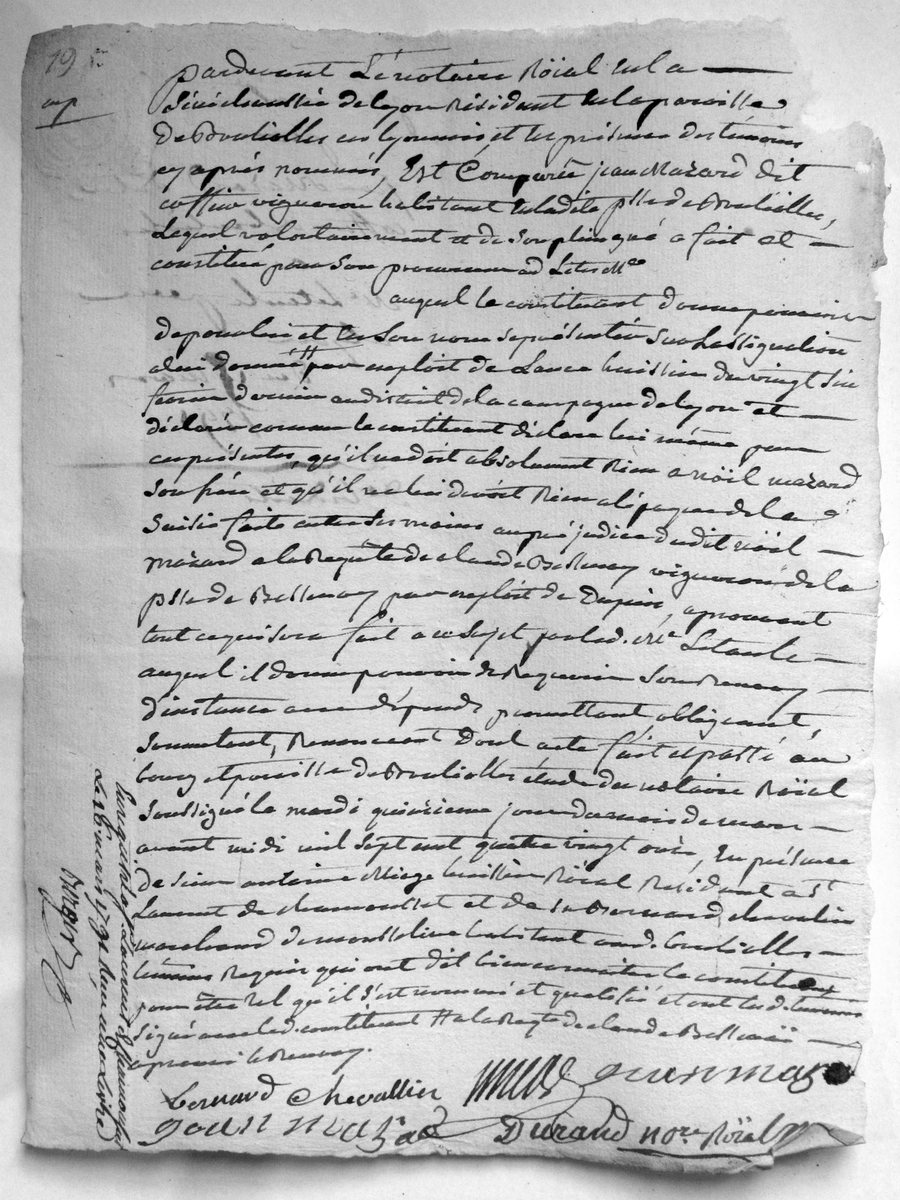 19
pardevant Le notaire Roïal en la
Sénéchaussée de Lyon Résidant en la paroisse
de Brulliolles en lyonnois et en présence des témoins
cy après nommés, Est Comparu jean Mazard dit
vigneron habitant en ladite psse de Brulliolles,
Lequel volontairement et de son plein gré a fait et
constitué pour son procureur ad Lites Me
auquel le constituant donne pouvoir
de pour lui et en Son nom se présenter Sur L'assignation
a lui donnée # par exploit de huissier du vingt six
février dernier en de la campagne de Lyon et
déclarer comme le constituant déclare lui même par
ces présentes, qu'il ne doit absolument Rien a noïel mazard
Son frère et qu'il ne lui devoit Rien a l'époque de la
Saisie faite entre Ses mains au préjudice dudit noïel
Mazard a la Requête de claude vigneron de la
psse de par exploit de Dupin, aprouvant
tout ce qui Sera fait a ce Sujet par led. Me
auquel il donne pouvoir de Requérir Son Renvoy
d'instance avec dépends promettant obligeant
Soumettant, Renonceant Dont acte fait et passé au
bourg et paroisse de Brulliolles étude du notaire Roïal
Soussigné le mardi quinzieme jour du mois de mars
avant midi mil Sept cent quatre vingt onze, En présence
de Sieur antoine huissier Roïal Résidant a St
Laurent de chamousset et de Sr Bernard chevalier
marchand de mousseline habitant aud. brulliolles
témoins Requis qui ont dit bien connoitre le constituant
pour être tel qu'il S'est nommé et qualifié et ont les d. témoins
Signé avec led. constituant # a la Reqte de claude
aprouvé le Renvoy.
Bernard Chevallier
jean mazard
Durand nore Roïal
St Laurent de chamousset
Le 26 mars 1791 Reçu